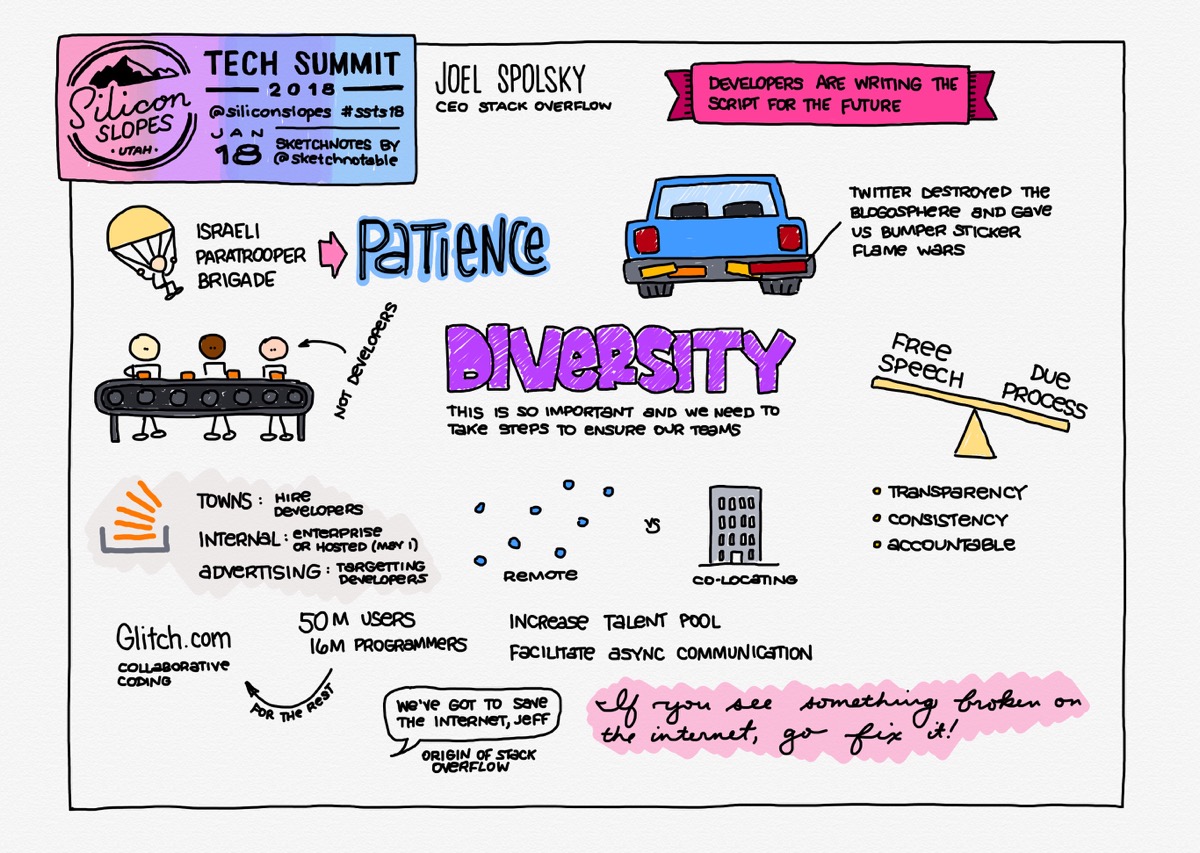 Silicon
SLOPES
• UTAH •
TECH SUMMIT
2018
@siliconslopes #ssts18
JAN
18
SKETCHNOTES BY
@sketchnotable
JOEL SPOLSKY
CEO STACK OVERFLOW
DEVELOPERS ARE WRITING THE
SCRIPT FOR THE FUTURE
ISRAELI
PARATROOPER
BRIGADE
PATIENCE
TWITTER DESTROYED THE
BLOGOSPHERE AND GAVE
US BUMPER STICKER
FLAME WARS
NOT DEVELOPERS
DIVERSITY
THIS IS SO IMPORTANT AND WE NEED TO
TAKE STEPS TO ENSURE OUR TEAMS
FREE
SPEECH
DUE
PROCESS
TOWNS : HIRE
DEVELOPERS
INTERNAL : ENTERPRISE
OR HOSTED (MAY 1)
ADVERTISING : TARGETTING
DEVELOPERS
REMOTE
VS
CO-LOCATING
• TRANSPARENCY
• CONSISTENCY
• ACCOUNTABLE
Glitch.com
COLLABORATIVE
CODING
50M USERS
16M PROGRAMMERS
FOR THE REST
INCREASE TALENT POOL
FACILITATE ASYNC COMMUNICATION
WE'VE GOT TO SAVE
THE INTERNET, JEFF
ORIGIN OF STACK
OVERFLOW
If you see something broken on
the internet, go fix it!